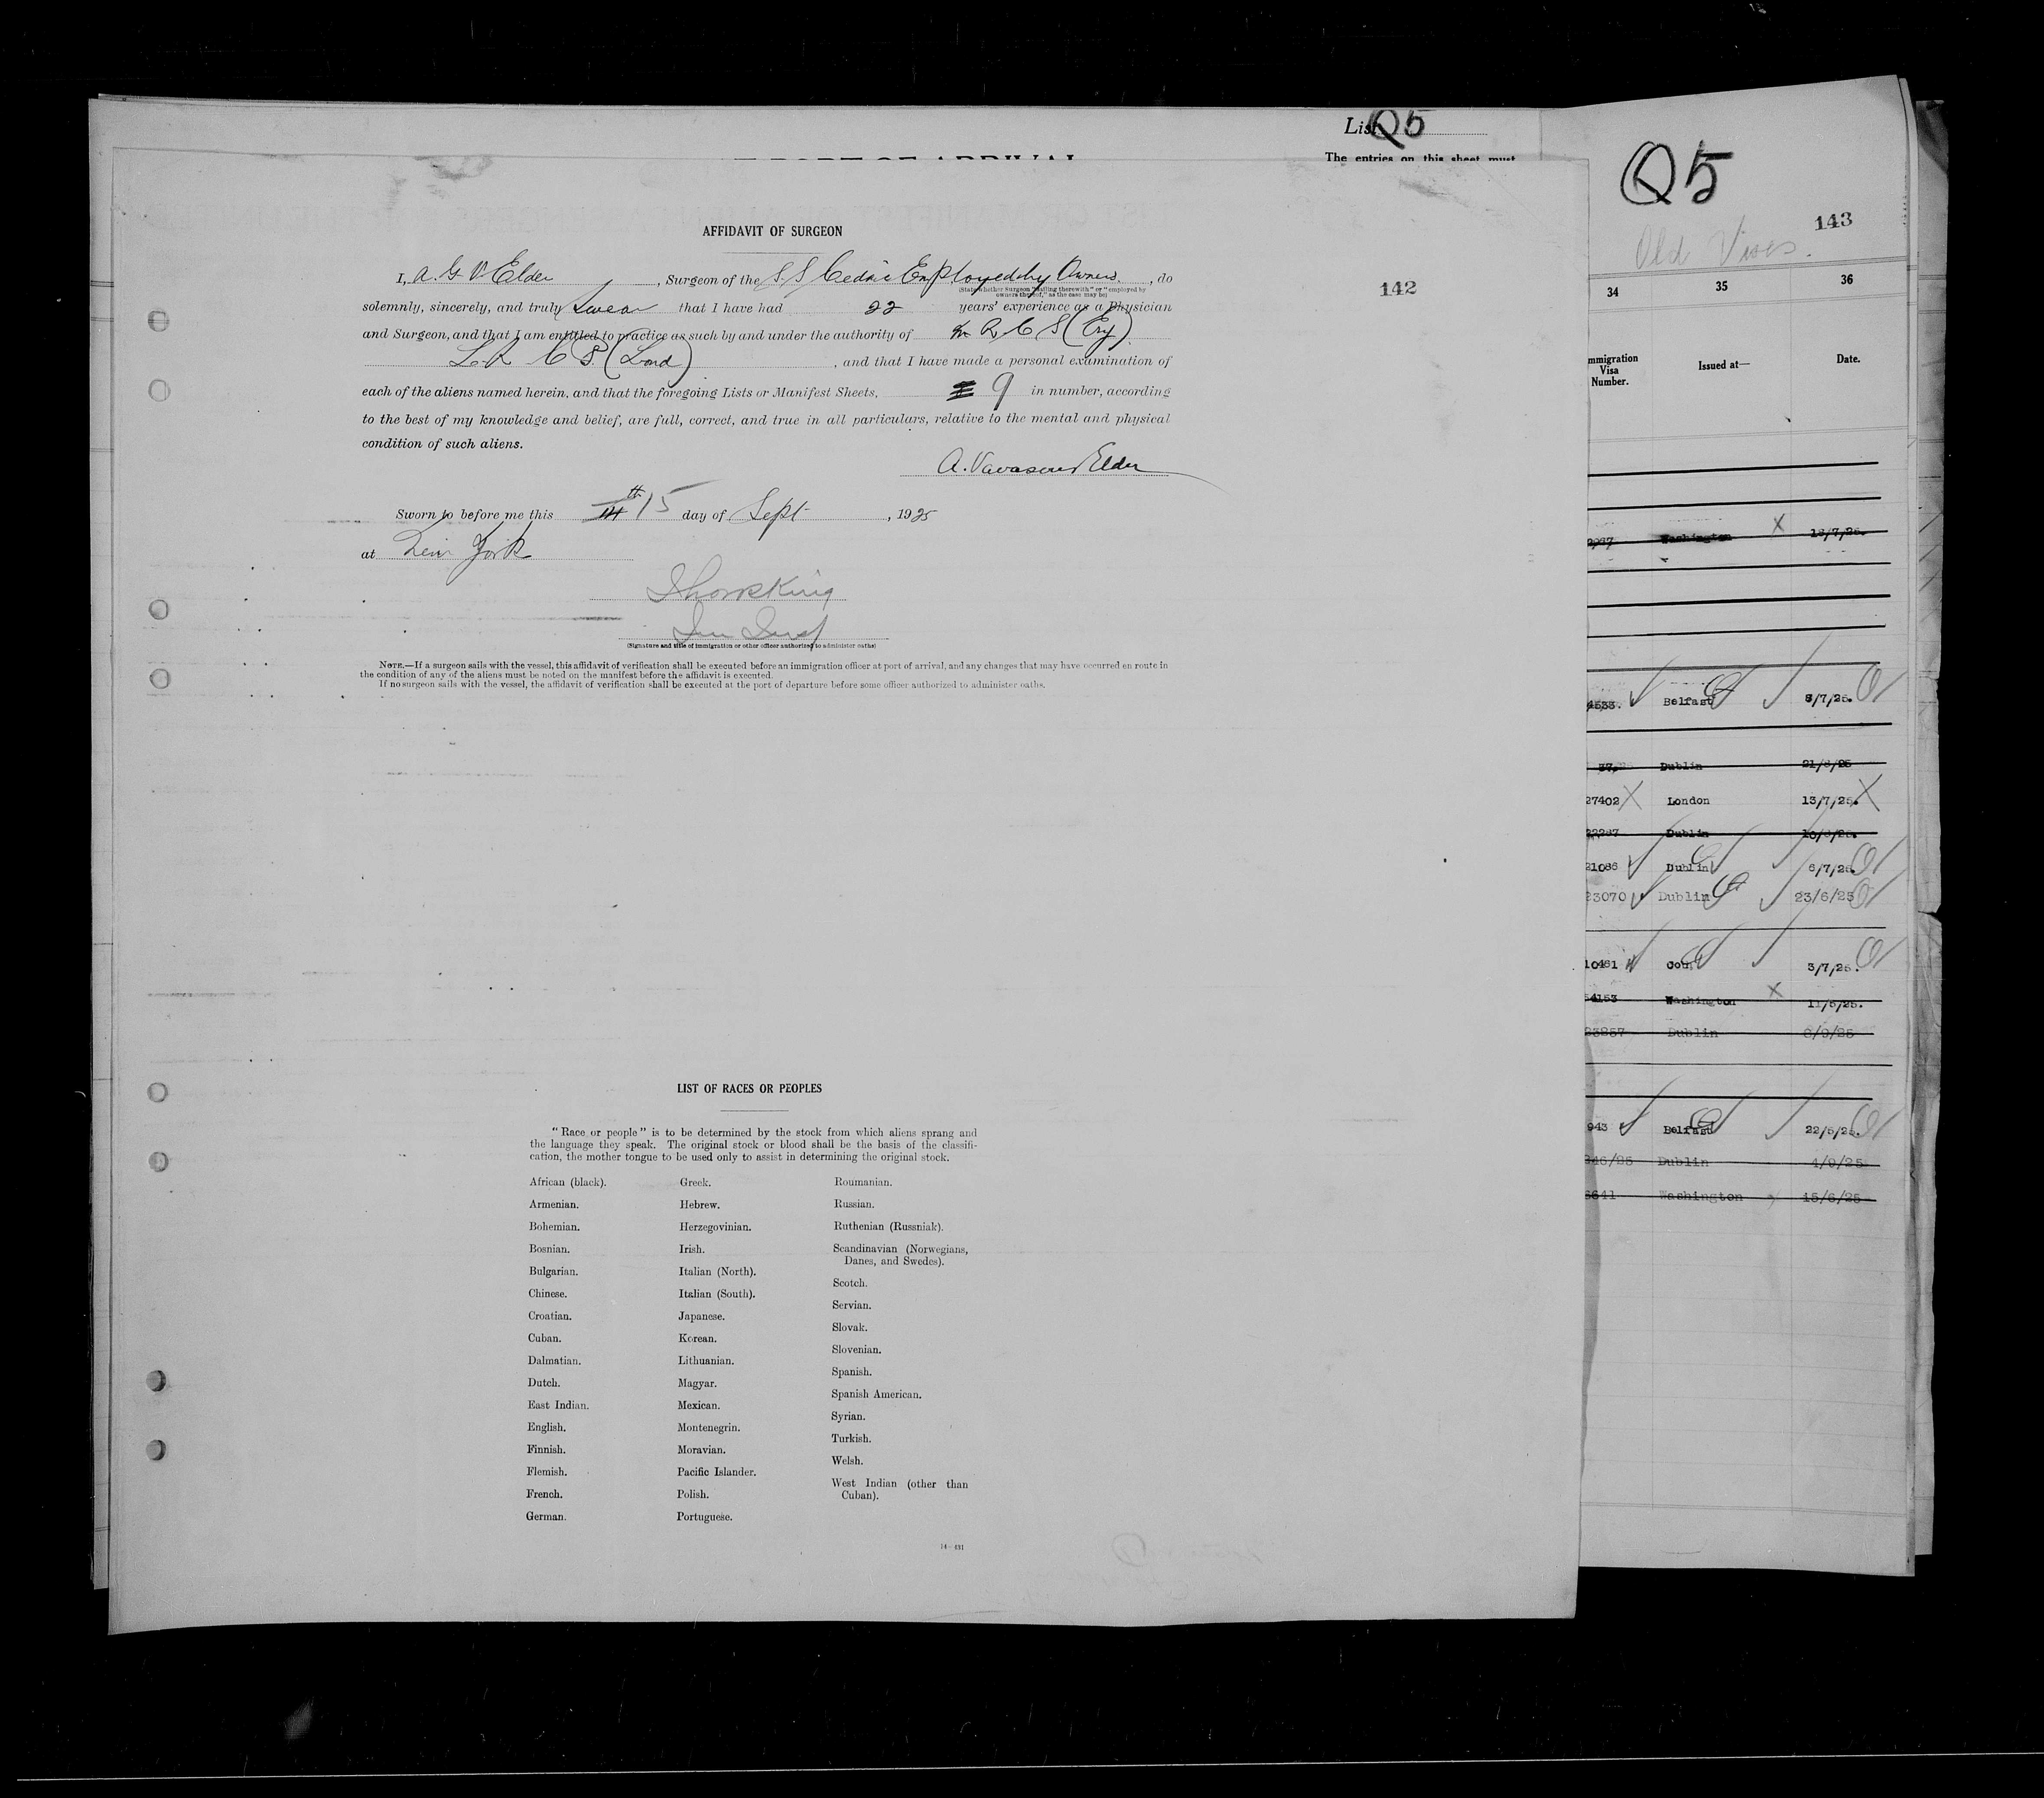 List Q5
The entries on this sheet must
Q5
143
Old Visas.
142
AFFIDAVIT OF SURGEON
I, A. G. V Elder, Surgeon of the S.S Cedric Employed by Owners, do
(State whether Surgeon "sailing therewith" or "employed by
owners thereof," as the case may be)
solemnly, sincerely, and truly Swear that I have had 22 years' experience as a Physician
and Surgeon, and that I am entitled to practice as such by and under the authority of M R C S (Eng)
L. R C P. (Lond), and that I have made a personal examination of
each of the aliens named herein, and that the foregoing Lists or Manifest Sheets, 9 in number, according
to the best of my knowledge and belief, are full, correct, and true in all particulars, relative to the mental and physical
condition of such aliens.
A. Vavasour Elder
Sworn to before me this 15th day of Sept, 1925
at New York
(Signature and title of immigration or other officer authorized to administer oaths)
NOTE.—If a surgeon sails with the vessel, this affidavit of verification shall be executed before an immigration officer at port of arrival, and any changes that may have occurred en route in
the condition of any of the aliens must be noted on the manifest before the affidavit is executed.
If no surgeon sails with the vessel, the affidavit of verification shall be executed at the port of departure before some officer authorized to administer oaths.
LIST OF RACES OR PEOPLES
"Race or people" is to be determined by the stock from which aliens sprang and
the language they speak. The original stock or blood shall be the basis of the classifi-
cation, the mother tongue to be used only to assist in determining the original stock.
African (black).
Armenian.
Bohemian.
Bosnian.
Bulgarian.
Chinese.
Croatian.
Cuban.
Dalmatian.
Dutch.
East Indian.
English.
Finnish.
Flemish.
French.
German.
Greek.
Hebrew.
Herzegovinian.
Irish.
Italian (North).
Italian (South).
Japanese.
Korean.
Lithuanian.
Magyar.
Mexican.
Montenegrin.
Moravian.
Pacific Islander.
Polish.
Portuguese.
Roumanian.
Russian.
Ruthenian (Russniak).
Scandinavian (Norwegians,
Danes, and Swedes).
Scotch.
Servian.
Slovak.
Slovenian.
Spanish.
Spanish American.
Syrian.
Turkish.
Welsh.
West Indian (other than
Cuban).
14—431
34 35 36
mmigration
Visa
Number.
Issued at—
Date.
2967 Washington X 18/7/25.
4533. Belfast 8/7/25.
37. Dublin 21/8/25
27402 X London 13/7/25. X
22287 Dublin 10/8/25.
21086 Dublin 6/7/25.
23070 Dublin 23/6/25
10461 3/7/25.
54153 Washington X 11/5/25.
23857 Dublin 8/9/25
943 Belfast 22/6/25.
346/25 Dublin 4/9/25
6641 Washington 15/6/25